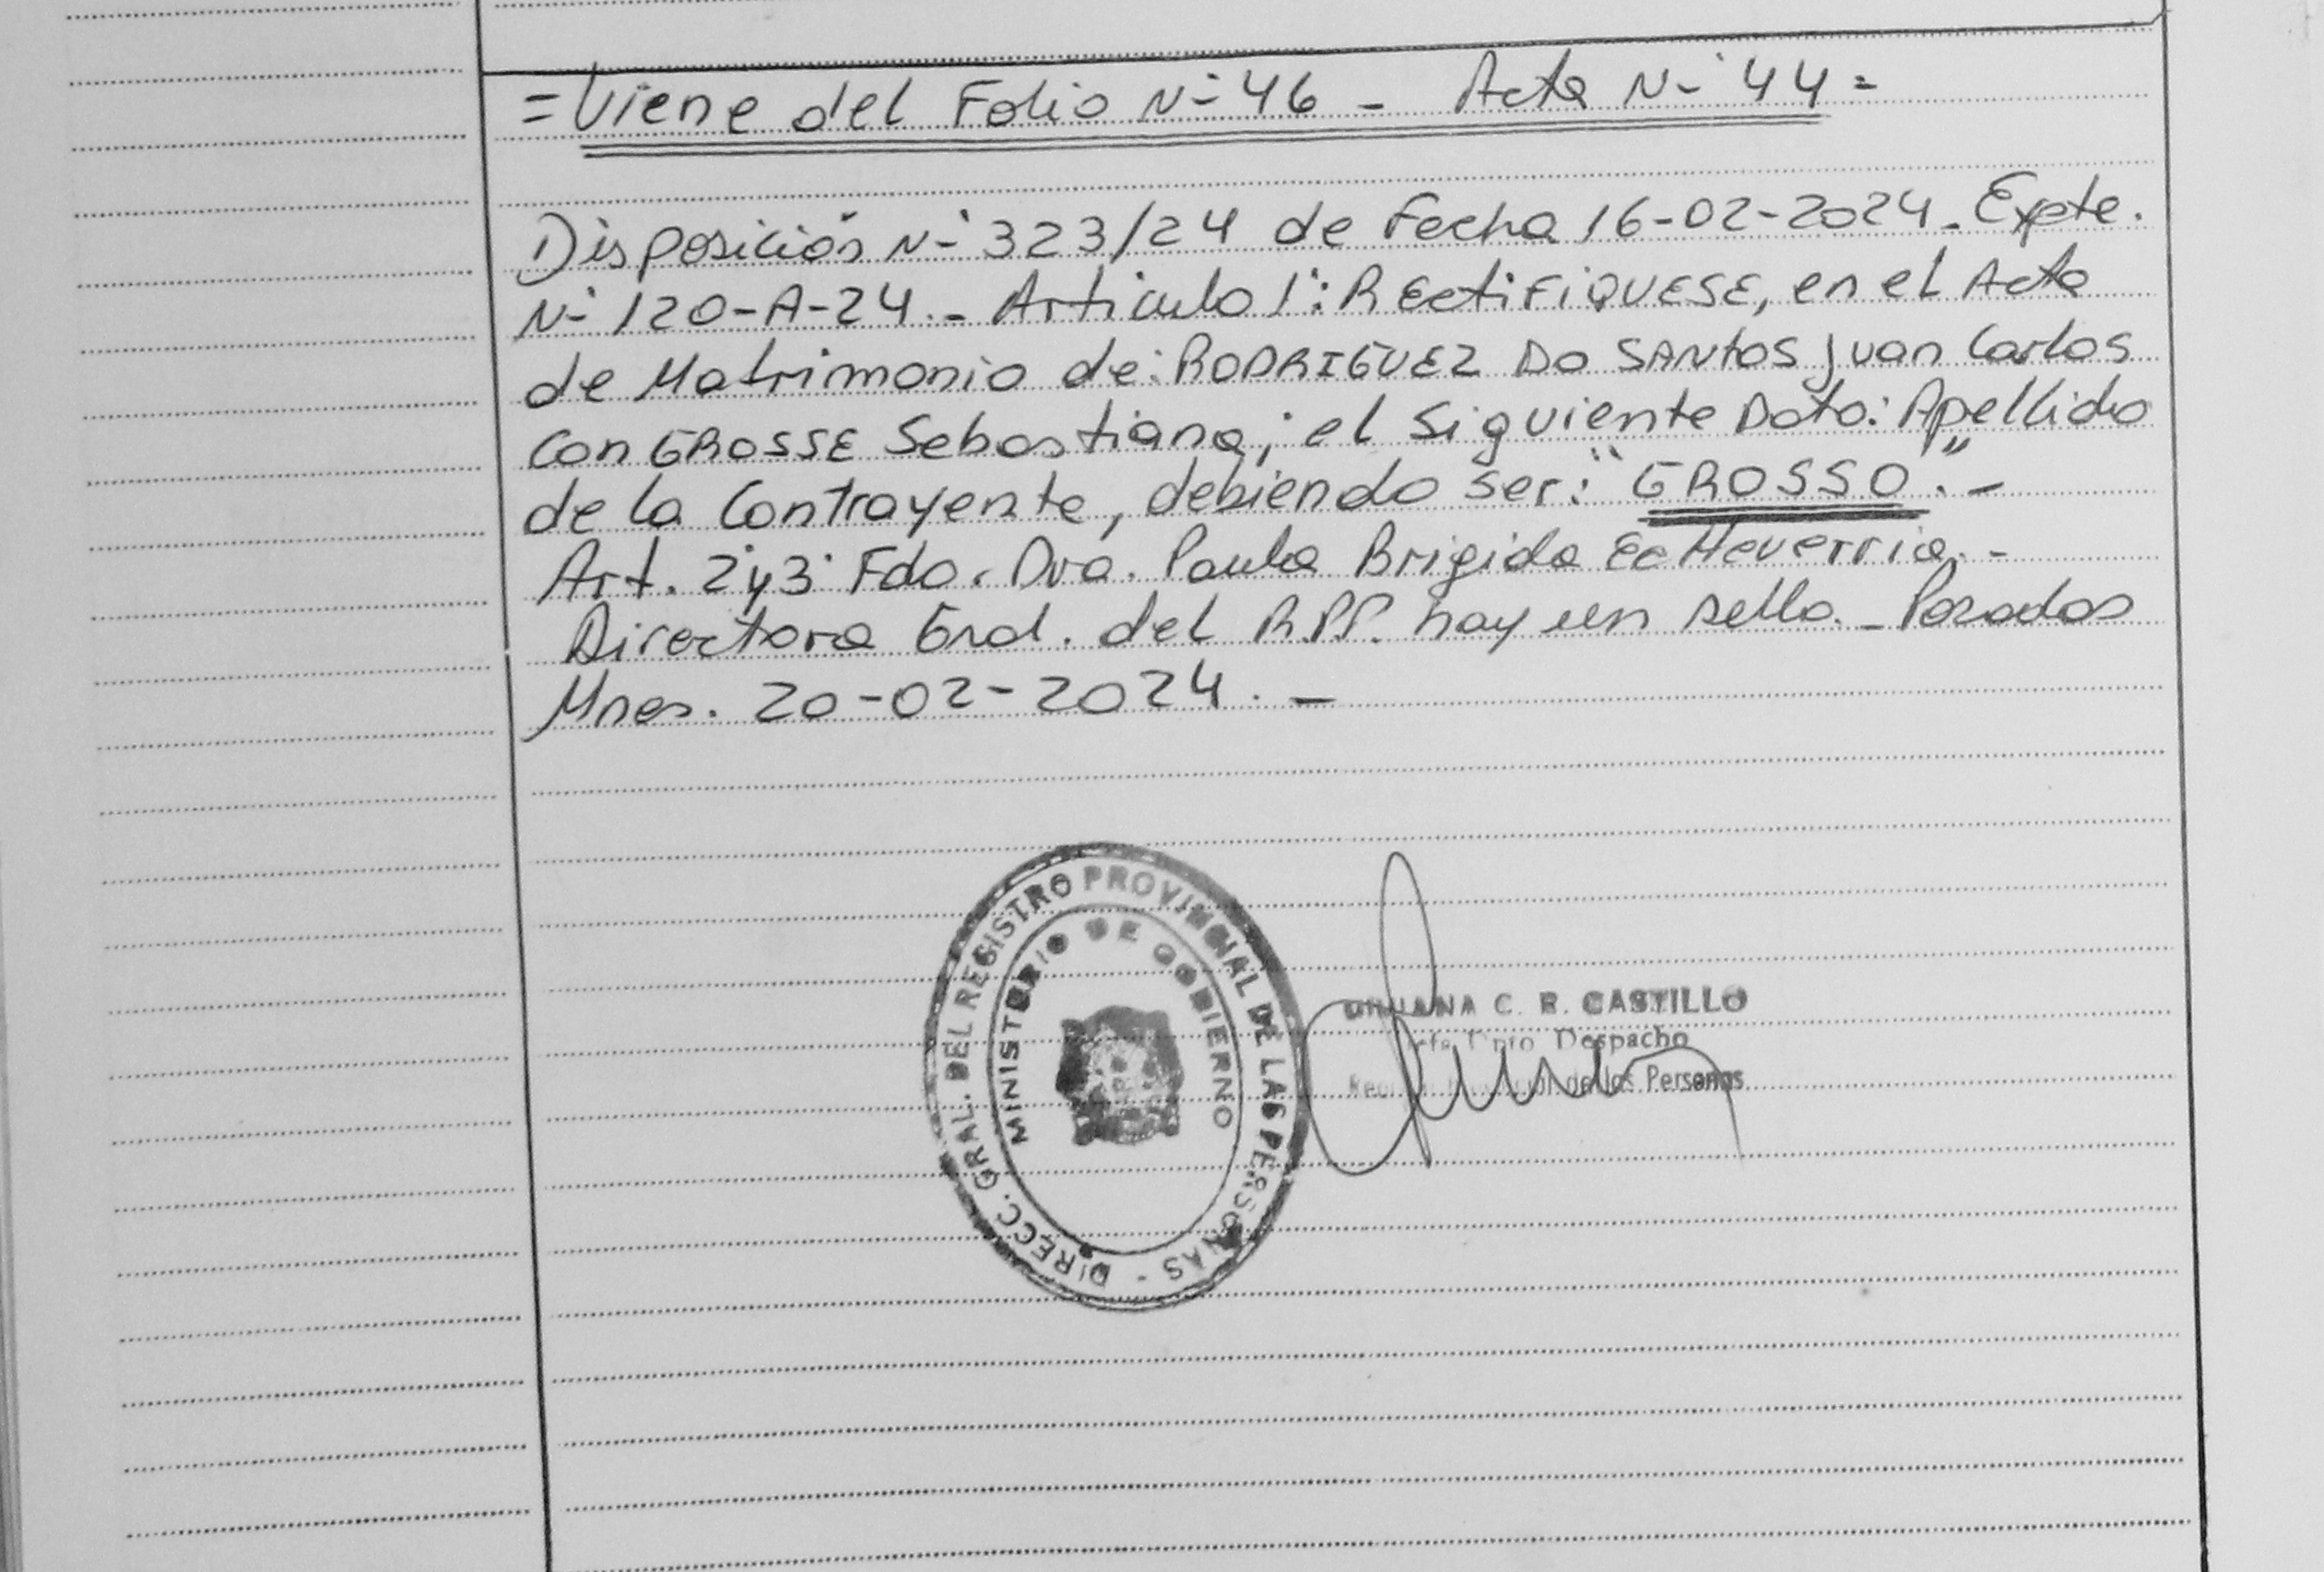 = Viene del Folio N- 46 - Acta N- 44 =
Disposición N- 323/24 de Fecha 16-02-2024.- Expte.
N- 120-A-24.- Articulo 1°: REctiFiQUESE, en el Acta
de Matrimonio de: RODRIGUEZ DO SANtOS Juan Carlos
con GROSSE Sebastiana; el siguiente Dato: Apellido
de la Contrayente, debiendo ser: "GROSSO".-
Art. 2° y 3° Fdo. Dra. Paula Brigida EcHeverria.-
Directora Gral. del R.P.P. hay un sello.- Posadas
Mnes. 20-02-2024.-
DIRECC. GRAL. DEL REGISTRO PROVINCIAL DE LAS PERSONAS -
MINISTERIO DE GOBIERNO
C. R. CASTILLO
Despacho
de las Personas